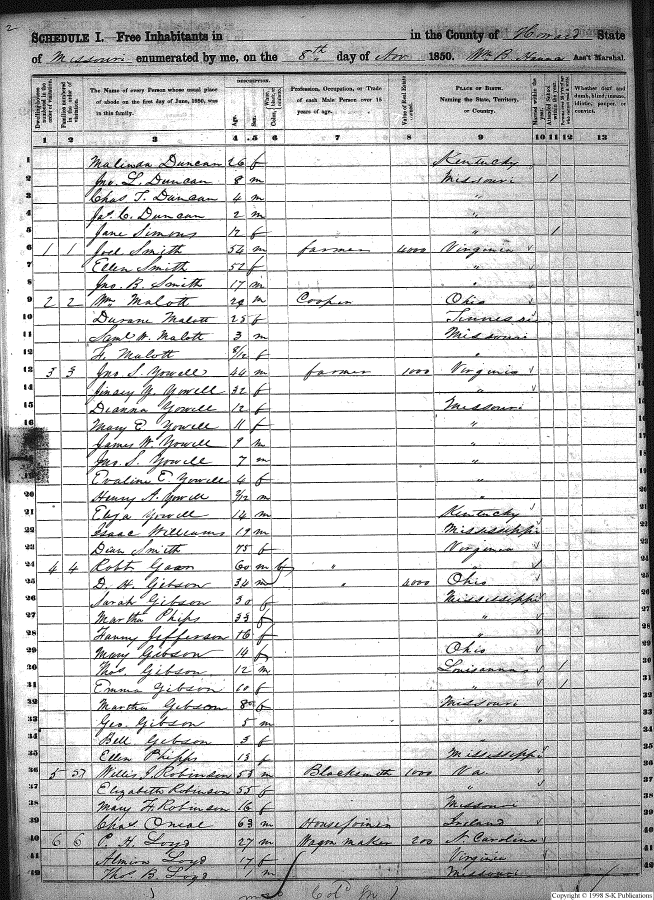 2
SCHEDULE I.—Free Inhabitants in in the County of Howard State
of Missouri enumerated by me, on the 8th day of Nov 1850. Wm B. Hanna Ass't Marshal.
Dwelling-houses numbered in the order of visitation.
Families numbered in the order of visitation.
The Name of every Person whose usual place of abode on the first day of June, 1850, was in this family.
DESCRIPTION.
Age.
Sex.
Color,
Profession, Occupation, or Trade of each Male Person over 15 years of age.
Value of Real Estate
PLACE OF BIRTH. Naming the State, Territory, or Country.
Married within the year.
Attended School within the year.
Whether deaf and dumb, blind, insane, idiotic, pauper, or convict.
1 2 3 4 5 6 7 8 9 10 11 12 13
1 Malinda Duncan 26 f Kentucky
2 Jno. L. Duncan 8 m Missouri 1
3 Chas T. Duncan 4 m "
4 Jas. C. Duncan 2 m "
5 Jane Simons 12 f " 1
6 1 1 Joel Smith 54 m farmer 4000 Virginia
7 Ellen Smith 52 f "
8 Jno. B. Smith 17 m "
9 2 2 Wm Malott 29 m Cooper Ohio
10 Malott 25 f Tennessee
11 Saml W. Malott 3 m Missouri
12 Malott 8/12 f "
13 3 3 Jno. S. Yowell 44 m farmer 1000 Virginia
14 Yowell 32 f "
15 Dianna Yowell 12 f Missouri
16 Mary E. Yowell 11 f "
James W. Yowell 9 m "
Jno. S. Yowell 7 m "
Evaline E. Yowell 4 f "
20 Henry A. Yowell m "
21 Eliza Yowell 14 m Kentucky
22 Isaac Williams 19 m Mississippi
23 Dian Smith 75 f Virginia
24 4 4 Robt 60 m " "
25 D. H. Gibson 34 m " 4000 Ohio
26 Sarah Gibson 30 f Mississippi
27 Martha Phips 33 f "
28 Fanny Jefferson 16 f "
29 Mary Gibson 14 f Ohio
30 Thos Gibson 12 m Louisanna 1
31 Emma Gibson 10 f " 1
32 Martha Gibson 8 f Missouri
33 Geo. Gibson 5 m "
34 Bell Gibson 3 f "
35 Ellen Phipps 13 f Mississippi
36 5 5 Willis J. Robinson 53 m Blacksmith 1000 Va
37 Elizabeth Robinson 55 f "
38 Mary F. Robinson 16 f Missouri
39 Chas Oneal 63 m House Joiner Ireland
40 6 6 P. H. Loyd 27 m Wagon maker 200 N. Carolina
41 Almira Loyd 17 f Virginia
42 Thos B. Loyd m Missouri
Copyright © 1998 S-K Publications